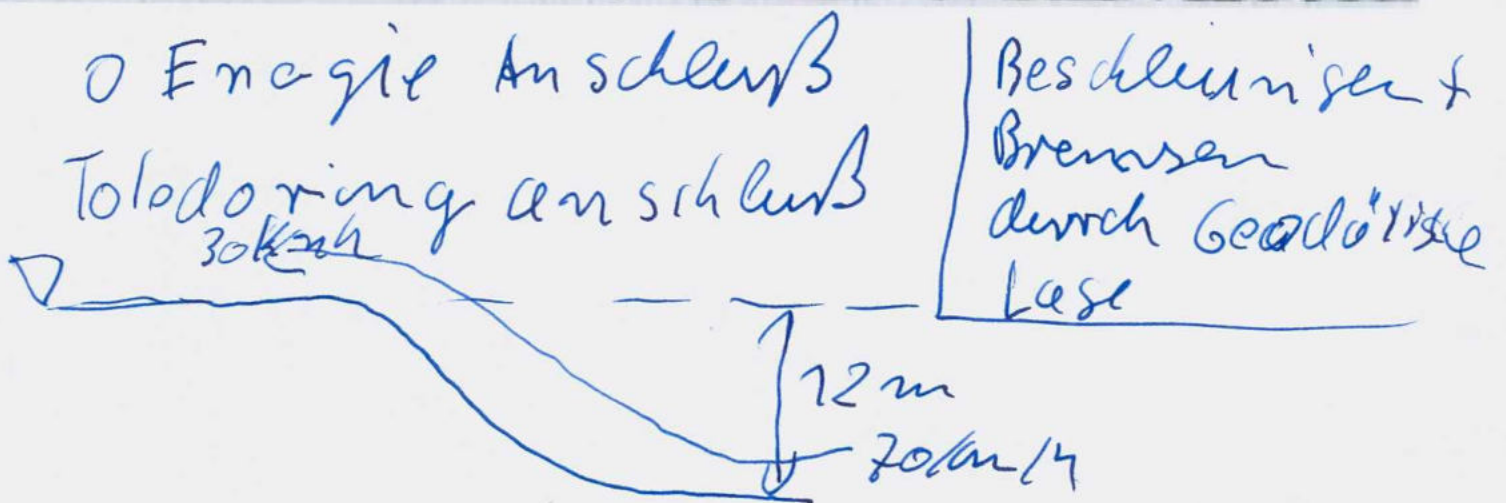 O Enagie Anschluß
Toledoring anschluß
30 km/h
Beschleunigen +
Bremsen
durch Geodätische
Lage
12 m
70 km/h